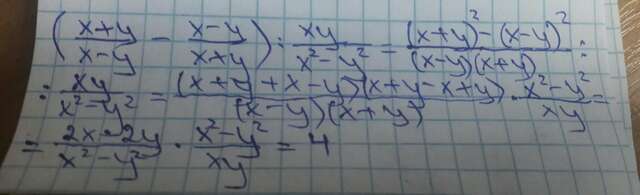 ((x+y)/(x-y) - (x-y)/(x+y)) : xy/(x²-y²) = ((x+y)² - (x-y)²)/((x-y)(x+y)) :
: xy/(x²-y²) = ((x+y+x-y)(x+y-x+y))/((x-y)(x+y)) · (x²-y²)/xy =
= (2x·2y)/(x²-y²) · (x²-y²)/xy = 4